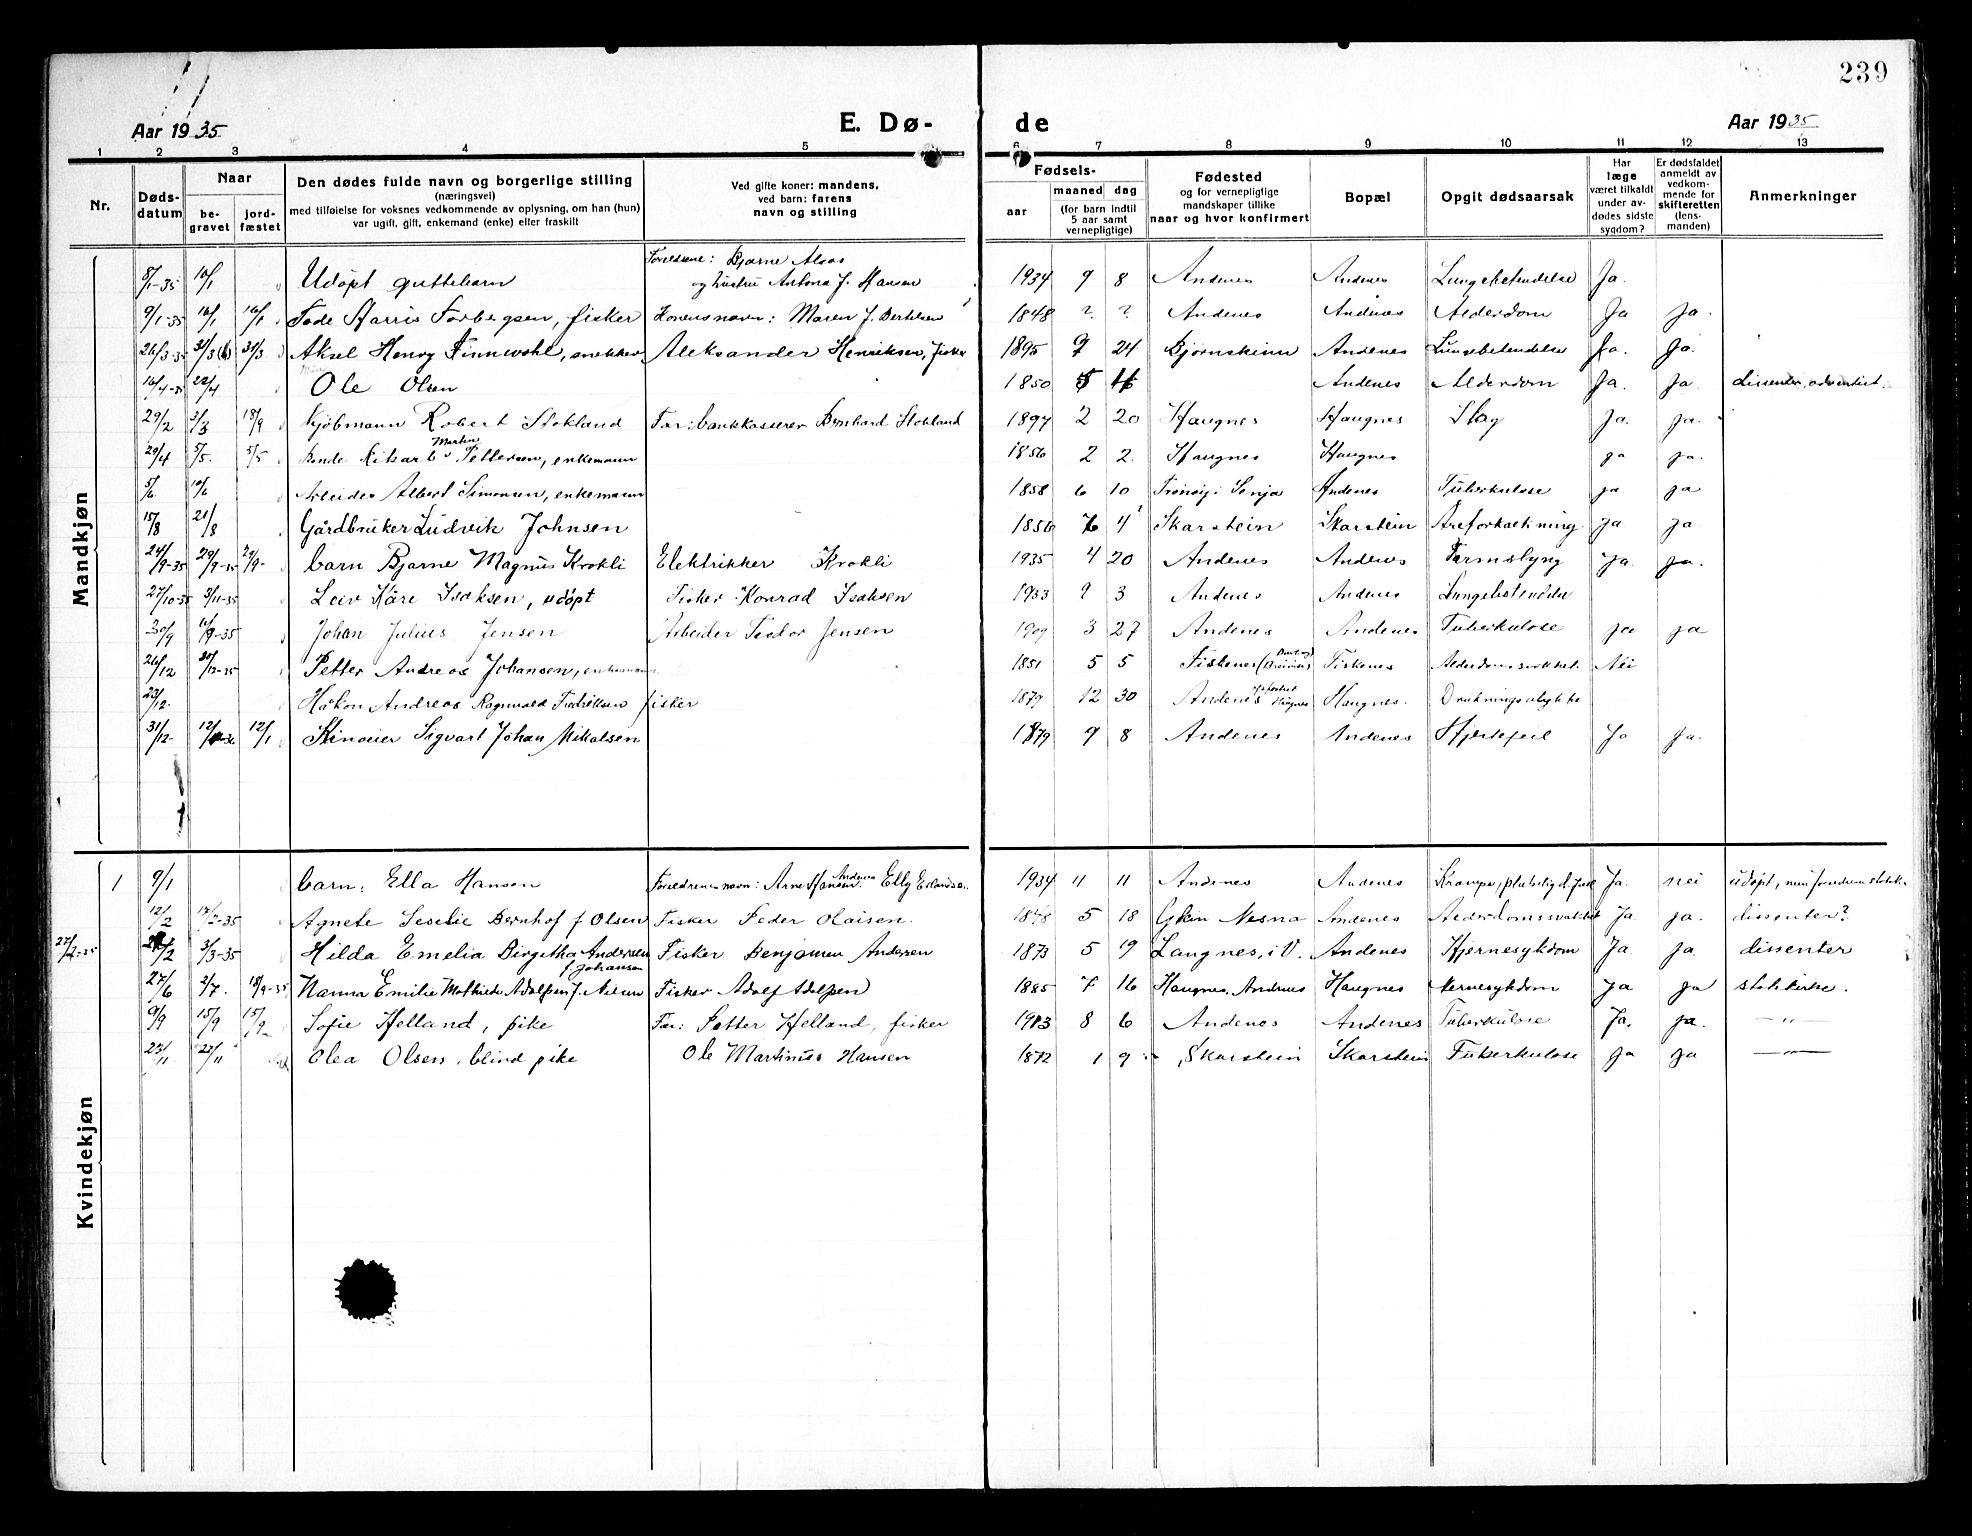 239
Aar 1935 E. Dø- de Aar 1935
1 2 3 4 5 6 7 8 9 10 11 12 13
Nr.
Døds-
datum
Naar
be-
gravet
jord-
fæstet
Den dødes fulde navn og borgerlige stilling
(næringsvei)
med tilføielse for voksnes vedkommende av oplysning, om han (hun)
var ugift, gift, enkemand (enke) eller fraskilt
Ved gifte koner: mandens,
ved barn: farens
navn og stilling
Fødsels-
aar
maaned dag
(for barn indtil
5 aar samt
vernepligtige)
Fødested
og for vernepligtige
mandskaper tillike
naar og hvor konfirmert
Bopæl
Opgit dødsaarsak
Har
læge
været tilkaldt
under av-
dødes sidste
sygdom?
Er dødsfaldet
anmeldt av
vedkom-
mende for
skifteretten
(lens-
manden)
Anmerkninger
Mandkjøn
Forældrene: Bjarne
8/1-35 10/1 Udøpt guttebarn og hustru Antona J. Hansen 1934 9 8 Andenes Andenes Lungebetendelse Ja.
9/1-35 16/1 16/1 Tode Harris Torbergsen, fisker Konens navn: Maren J. Bertelsen 1848 ? ? Andenes Andenes Alderdom Ja Ja.
26/3-35 31/3 31/3 Aksel Henry Finnwohl, snekker Aleksander Henriksen, fisker 1895 9 24 Bjørnskinn Andenes Lungebetendelse Ja. Ja.
16/4-35 22/4 Ole Olsen 1850 Andenes Alderdom Ja. Ja. dissenter, adventist.
29/2 3/3 18/9 Kjøbmann Robert Stokland Far: bankkasserer Bernhard Stokland 1897 2 20 Haugnes Haugnes Slag Ja. Ja.
Martin
29/4 5/5. 5/5 Bonde Rikard Pettersen, enkemann 1856 2 2. Haugnes Haugnes ja ja.
5/6. 10/6 Arbeider Albert Simonsen, enkemann 1858 6 10 Senja Andenes Tuberkulose ja ja
15/8 21/8 Gårdbruker Ludvik Johnsen 1856 4 Skarstein Skarstein Åreforkalkning. Ja Ja.
24/9-35 29/9-35 29/9- barn Bjarne Magnus Krokli Elektrikker Krokli 1935 4 20 Andenes Andenes Tarmslyng Ja. ja.
27/10-35 3/11-35 Leiv Kåre Isaksen, udøpt Fisker Konrad Isaksen 1933 9 3 Andenes Andenes Lungebetendelse
30/9 Johan Julius Jensen Arbeider Teodor Jensen 1909 3 27 Andenes Andenes Tuberkulose ja ja
26/12 30/12-35 Petter Andreas Johansen, enkemann 1851 5 5 Fiskenes Fiskenes Alderdomssvakhet. Nei
23/12. Håkon Andreas Ragnvald Fredriksen fisker 1879 12 30 Andenes Haugnes. Drukningsulykke
31/12- 12/1 12/1 Kinoeier Sigvart Johan Mikalsen 1879 9 8 Andenes Andenes Hjertefeil Ja Ja.
Kvindekjøn
1 9/1 barn: Ella Hansen Forældrenes navn: Arne Hansen Andenes Elly 1934 11 11 Andenes Andenes Krampe, pludselig d. Ja. nei udøpt, men
12/2 17/2-35 Agnete Seselie Bernhof f. Olsen Fisker Peder Olaisen. 1848 5 18 Nesna Andenes Alderdomssvakhet Ja. ja. dissenter?
27/2-35 3/3-35 Hilda Emelia Birgitha Andersen Fisker Benjamin Andersen 1873 5 19 Langnes, i V. Andenes Hjernesykdom Ja ja. dissenter
f. Johansen
27/6 2/7. 18/9-35 Nanna Emilie Mathilde Adolfsen f. Fisker Adolf Adolfsen 1885 7 16 Haugnes, Andenes Haugnes Nervesykdom ja ja statskirke.
9/9 15/9 15/9- Sofie Helland, pike Far: Petter Helland, fisker 1913 8 6 Andenes Andenes Tuberkulose Ja. ja. —"—
23/11 27/11 Olea Olsen, blind pike Ole Martinus Hansen 1872 1 9 Skarstein Skarstein Tuberkulose ja ja —"—